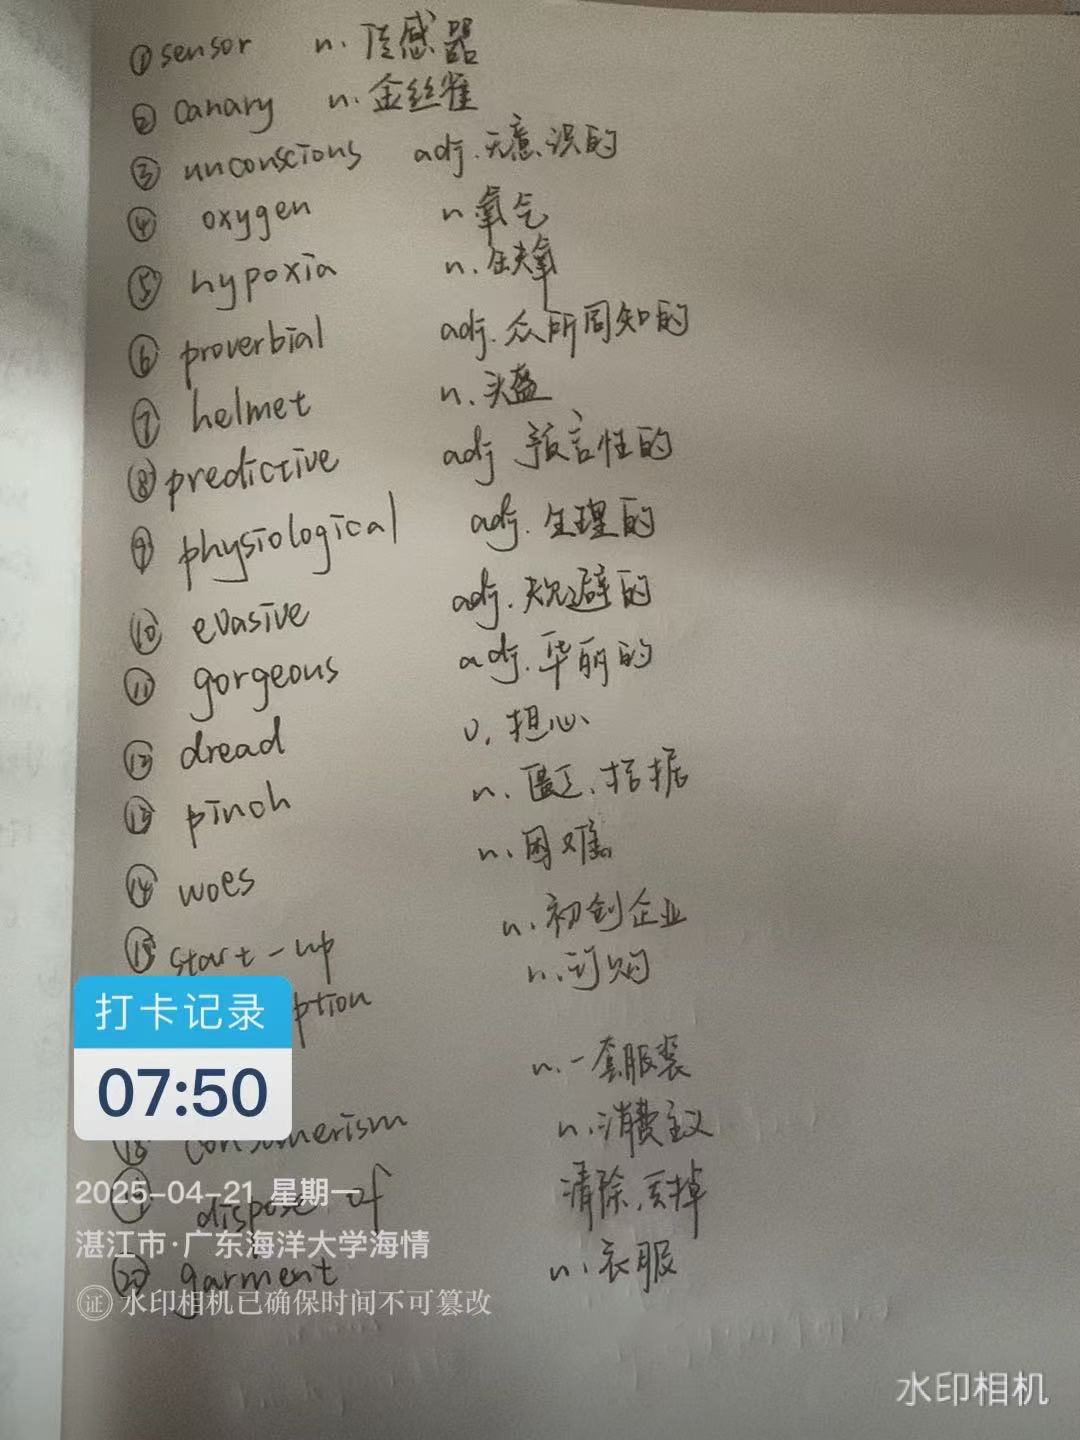 ①sensor n. 传感器
② canary n. 金丝雀
③ unconscious adj. 无意识的
④ oxygen n 氧气
⑤ hypoxia n. 缺氧
⑥ proverbial adj. 众所周知的
⑦ helmet n. 头盔
⑧ predictive adj 预言性的
⑨ physiological adj. 生理的
⑩ evasive adj. 规避的
⑪ gorgeous adj. 华丽的
⑫ dread v. 担心
⑬ pinch n. 匮乏、拮据
⑭ woes n. 困难
⑮ start-up n. 初创企业
ption n. 订购
打卡记录
n. 一套服装
07:50
⑱ consumerism n. 消费主义
⑲ dispose of 清除,丢掉
2025-04-21 星期一
湛江市·广东海洋大学海情
⑳ garment n. 衣服
证 水印相机已确保时间不可篡改
水印相机